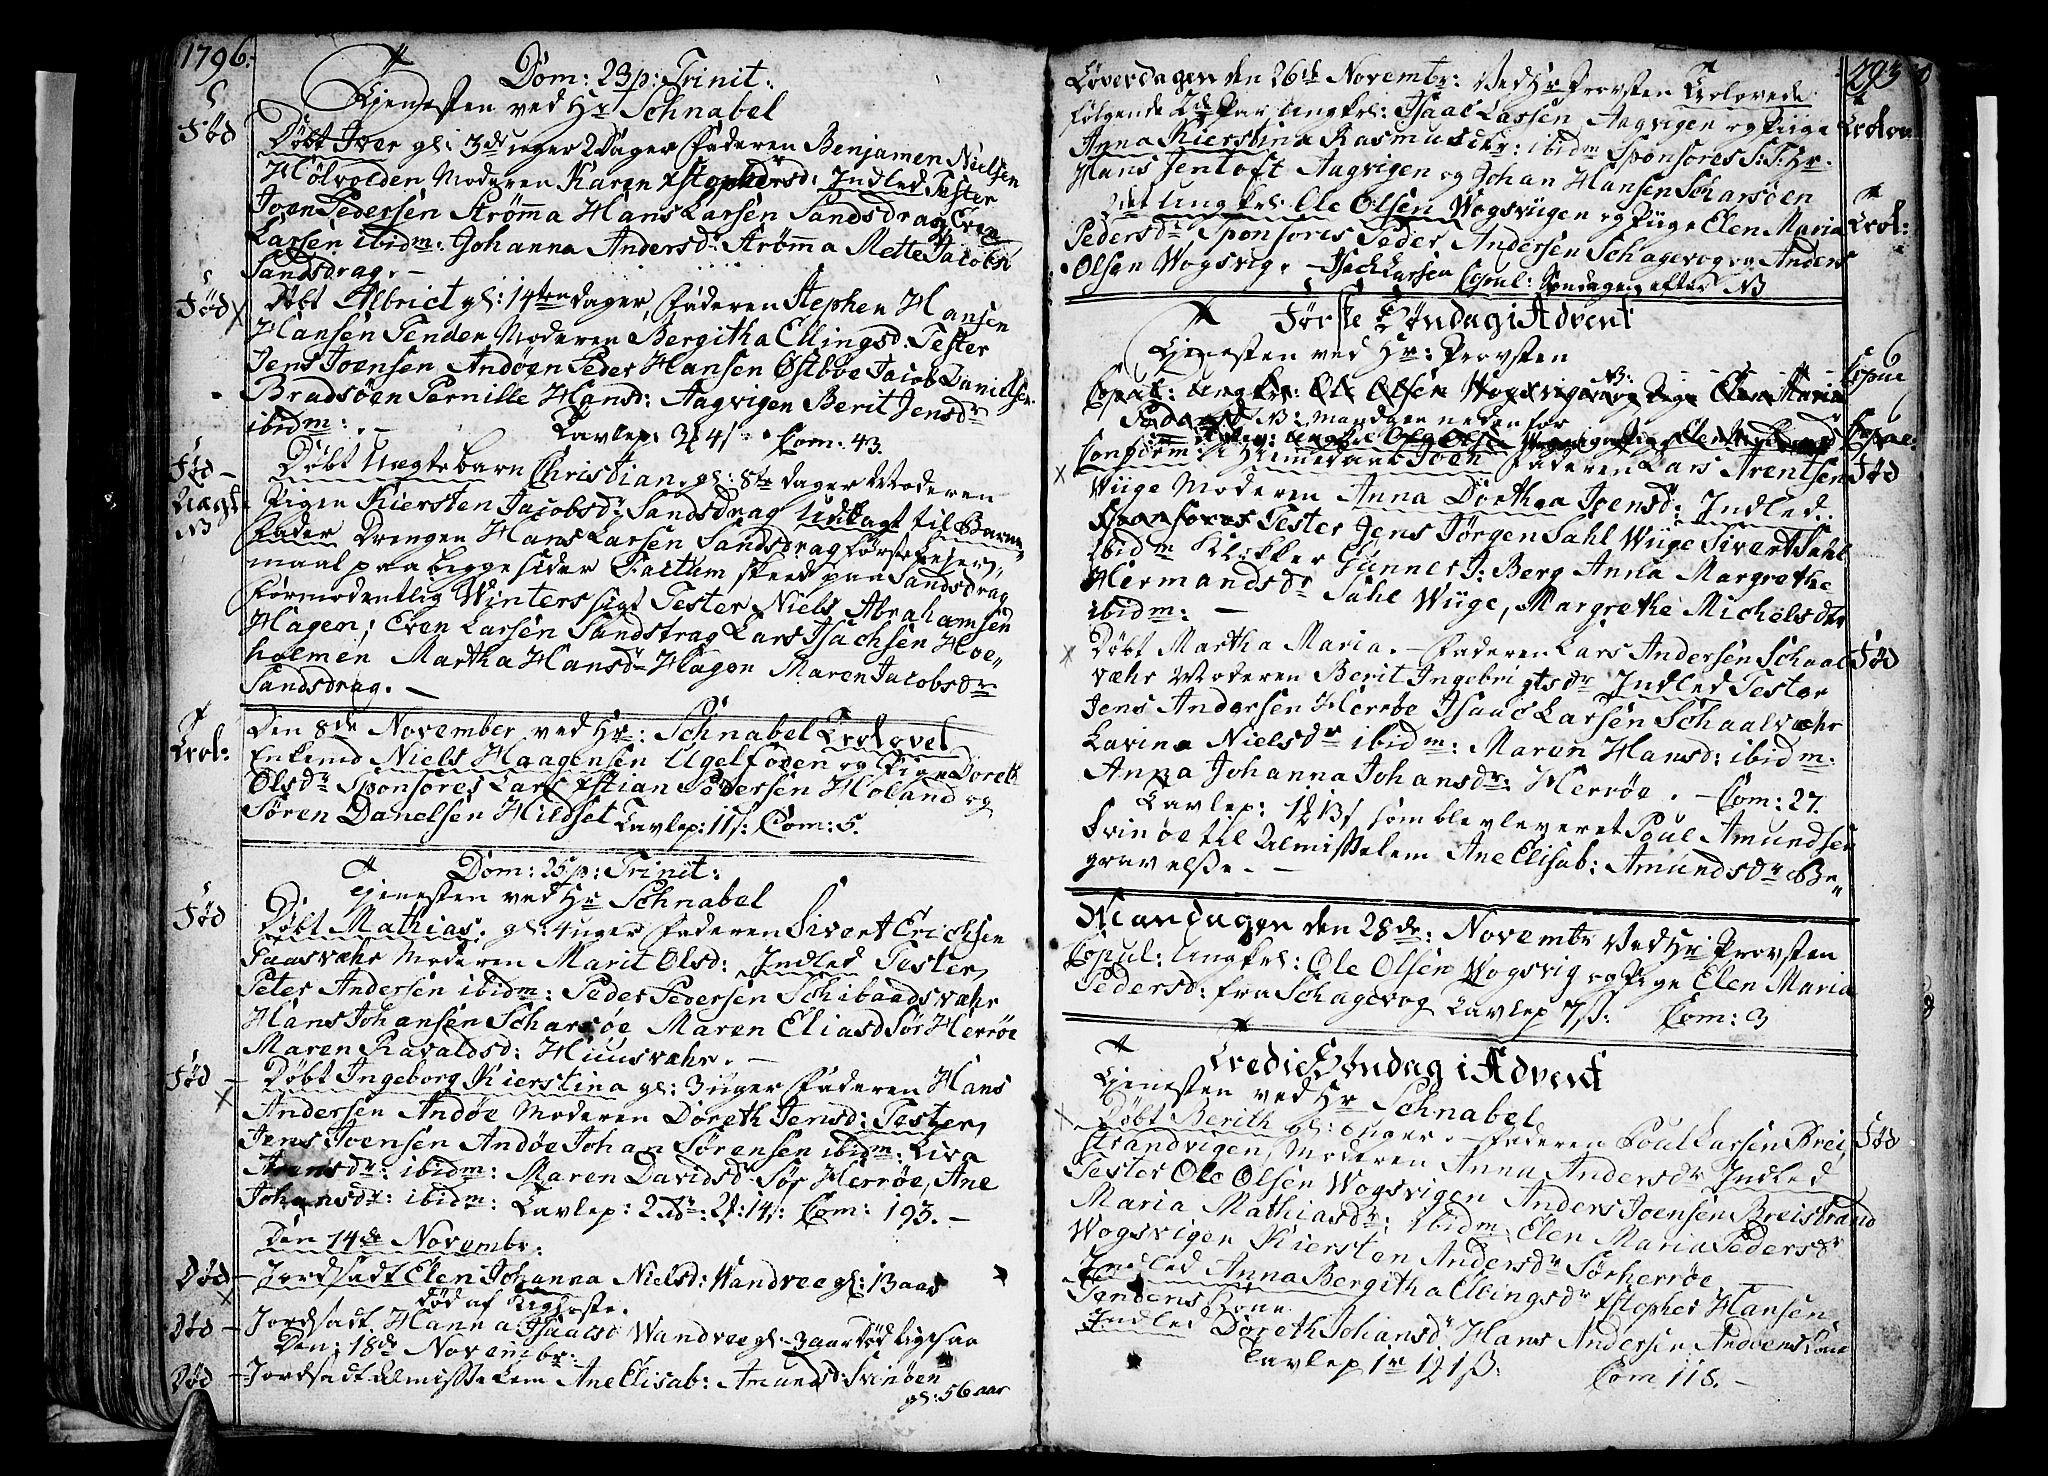 1796.
Dom: 23 p: Trinit:
Tjenesten ved Hr Schnabel
Fød
Døbt Iver gl: 3de uger 2 Dager Faderen Benjamen Nielsen
Holvolden Moderen Karen Xstophersd: Indled Tester
Joen Pedersen Strømma Hans Larsen Sandsdrag Even
Larsen ibidm: Johanna Andersdr Strømma Mette Jacobsd
Sandsdrag. -
Fød
Døbt Albrict gl: 14ten dager, Faderen Stephen Hansen
Hansen Tenden Moderen Bergitha Ellingsd: Tester
Jens Joensen Andøen Peder Hansen Østbøe Jacob Danielsen
Bradsøen Pernille Hansd: Aagvigen Berit Jensdr
ibidm: . - Tavlep: 3 4 Com: 43.
Fød - Uægte NB
Døbt Uægtebarn Christian, gl: 8te dager Moderen
Pigen Kiersten Jacobsdr Sandsdrag Udlagt til Barne
Fader Drengen Hans Larsen Sandsdrag første Lejer,,
maal paa begge sider Factum skeed paa Sandsdrag
formodentlig Winters sigt Tester Niels Abrahamsen
Hagen; Even Larsen Sandstrag Lars Isachsen Hoe,,
holmen Martha Hansdr Hagen Maren Jacobsdr
Sandsdrag. -
Trol:
Den 8de November ved Hr: Schnabel Trolovet
Enkemd Niels Haagensen Ugelfoden og Pige Doreth
Olsdr Sponsores Lars Xstian Pedersen Holand og
Søren Danelsen Hildset Tavlep: 11 s: Com: 5.
Dom: 25 p: Trinit:
Tjenesten ved Hr Schnabel
Fød
Døbt Mathias. gl: 4 uger Faderen Sivert Erichsen
Faasvæhr Moderen Marit Olsd: Indled Tester,
Peter Andersen ibidm: Peder Pedersen Schibaadsvæhr
Hans Johansen Scharsøe Maren Eliasd Sør Herrøe
Maren Ravaldsd: Huusvæhr. -
Fød -
Døbt Ingeborg Kierstina gl: 3 uger Faderen Hans
Andersen Andøe Moderen Doreth Jensd: Tester,
Jens Joensen Andøe Johan Sørensen ibidm: Lira
Arensdr: ibidm: Maren Davidsd Sør Herrøe, Ane
Johansdr: ibidm: Tavlep: 2 dr: 2 : 14 s: Com: 193. -
Den 14de Novembr.
Død - Jordfadt Elen Johanna Nielsd: Wandvee gl: 13 aar
død af Kighoste.
Død - Jordfadt Hanna Isaacsd Wandvee gl: 3 aar Død ligesaa
Den: 18de Novembr:
Død - Jordfadt Almisselem Ane Elisab: Amundsd: Svinøen
gl: 56 aar
293
Løverdagen den 26de Novembr: Ved Hr Provsten Trolovede
følgende 2de Par, Ungkrl: Isaac Lassen Aagvigen og Piige
Trolov
Anna Kierstina Rasmusdtr: ibidm Sponsores S: T: Hr.
Hans Jentoft Aagvigen og Johan Hansen Scharsøen
2det Ungkrl: Ole Olsen Wogsviigen og Piige Elen Maria
Trol:
Pedersdr, Sponsores Peder Andersen Schagevog og Anders
Olsen Wogsvig. - Isach Larsen Copul: Søndagen efter NB
Første Søndag i Advent
Tjenesten ved Hr: Provsten
Copul
Copul: Ungkr: Ole Olsen Wogsvigen og Pige Elen Maria
NB: Mandagen nedenfor
Copul:
Confirm: Hiemedøbt Joen Faderen Lars Arentsen
Fød
Wiige Moderen Anna Dorthea Joensd: Indled.
Sponsores Tester Jens Jørgen Dahl Wiige Sivert Dahl
ibidm Klokker Gunner J: Berg Anna Margrethe
Hermandsdr Dahl Wiige, Margrethe Michelsdtr
ibidm: -
Døbt Martha Maria. - Faderen Lars Andersen Schaal
Fød
væhr Moderen Berit Ingebrigtsdr Indled Tester
Jens Andersen Herrøe Isaac Larsen Schaalvæhr
Lavina Nielsdr ibidm: Maren Hansd: ibidm.
Anna Johanna Johansdr: Herrøe. - Com: 27.
Tavlep: 1 2 13 s, som blev leveret Poul Amundsen
Svinøe til Almisselem Ane Elisab: Amundsdr Be,,
gravelse. -
Mandagen den 28de: Novembr Ved Hr Provsten
Copul: Ungkrl: Ole Olsen Wogsvig og Pige Elen Maria
Pedersd: fra Schagevog Tavlep 7 s: Com: 3
Tredie Søndag i Advent
Tjenesten ved Hr Schnabel
Døbt Berith gl: 6 uger. - Faderen Poul Larsen Brei
Fød
strandvigen, Moderen Anna Andersdr Indled
Tester Ole Olsen Wogsvigen Anders Joensen Breistrand
Maria Mathiasdr: ibidm Elen Maria Pedersdr
Wogsvigen Kiersten Andersdr Sørherrøe
Indled Anna Bergitha Ellingsdr Xstopher Hansen
Tendens Kone
Indled Doreth Johansdr Hans Andersen Andøens Kone
Tavlep 1 r 1 2 1 s. Com 118. -